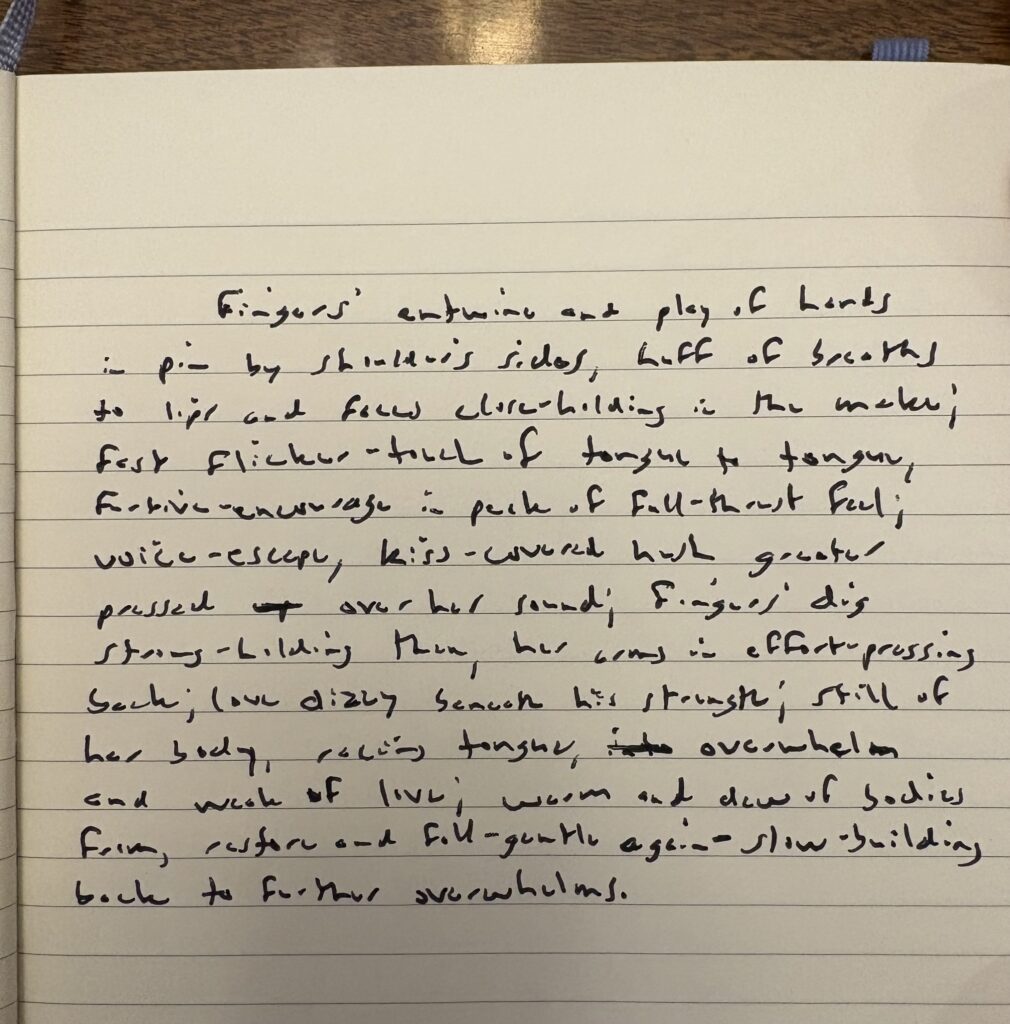 Fingers' entwine and play of hands
in pin by shoulder's sides, huff of breaths
to lips and faces close-holding in the make;
fast flicker-touch of tongue to tongue,
furtive-encourage in peak of full-thrust feel;
voice-escape, kiss-covered hush greater
pressed over her sound; fingers' dig
strong-holding then, her arms in effort-pressing
back; love dizzy beneath his strength; still of
her body, racing tongue, overwhelm
and weak of love; warm and dew of bodies
from, restore and full-gentle again - slow-building
back to further overwhelms.